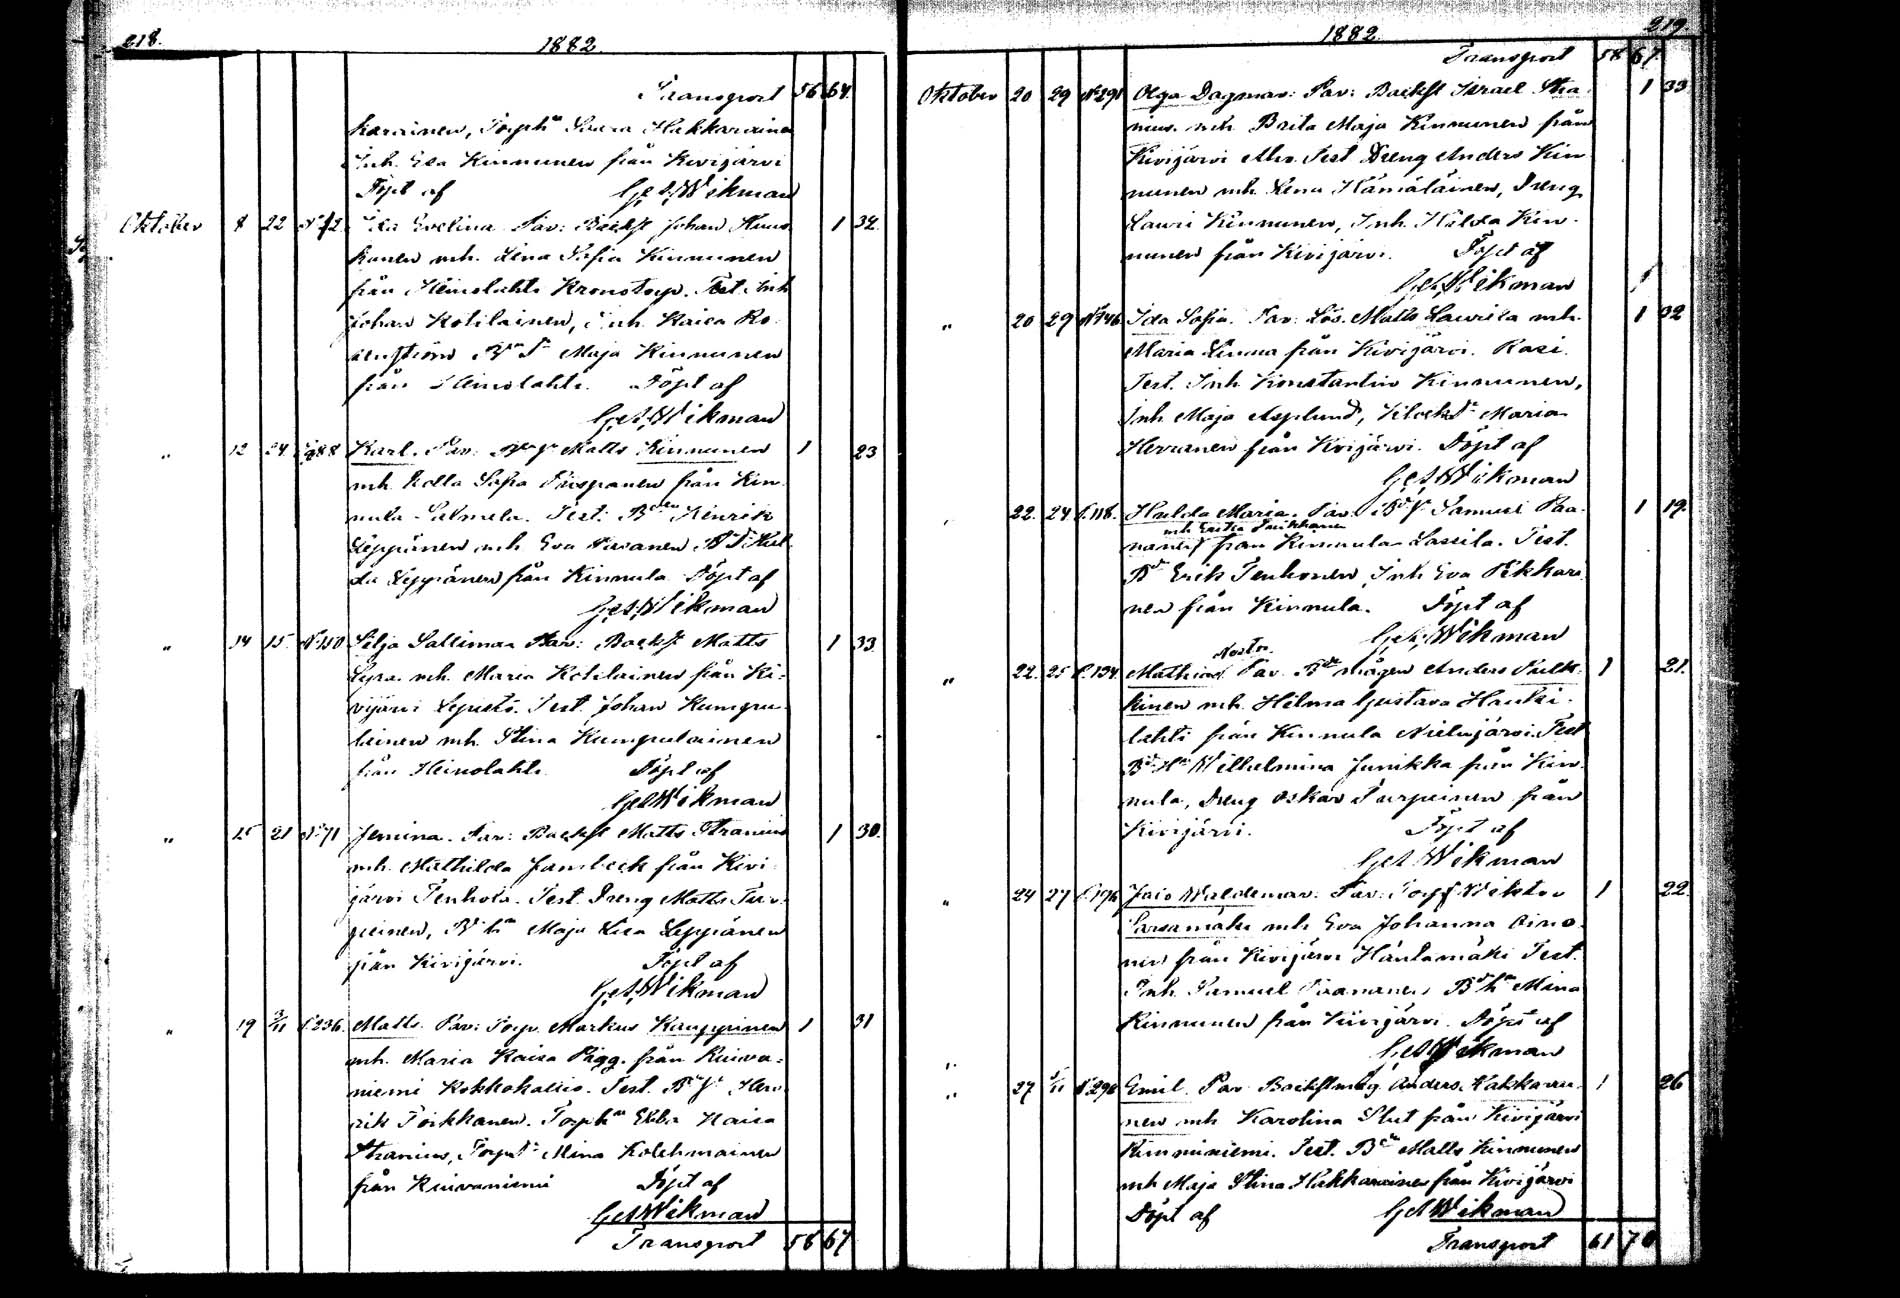 218.
1882
Transport 56 64
karainen, Torph Hakkarainen
Inh. Eva Kinnunen från Kivijärvi
Döpt af G. A. Wikman
Oktober 8 22 Ida Evelina. Par: Backst Johan Huus 1 34
konen mh. Lena Sofia Kinnunen
från Heinolahti Kronotorp. Test. Inh
Johan Kotilainen, Inh. Kaisa Ro
senström Maja Kinnunen
från Heinolahti. Döpt af
G. A. Wikman
" 12 24 Karl. Par: Matts Kinnunen 1 23
mh. Sofia Piispanen från Kin
nula Salmela. Test: Henrik
Leppänen mh. Eva Hul
da Leppänen från Kinnula Döpt af
G. A. Wikman
" 14 15 Silja Sallima Par: Backst Matts 1 33
mh. Maria Kotilainen från Ki
vijärvi Lepistö. Test. Johan Kumpu
lainen mh. Stina Kumpulainen
från Heinolahti Döpt af
G. A. Wikman
" 15 21 N:71 Jemina. Par: Backst Matts Stranius 1 30
mh. Mathilda Jambeck från Kivi
järvi Tenhola. Test. Dreng Matts Tur
peinen, Maja Lisa Leppänen
från Kivijärvi. Döpt af
G. A. Wikman
" 19 3/11 236. Matts. Par: Torp. Markus Kauppinen 1 31
mh. Maria Kaisa Pigg. från Kuiva
niemi Kokkokallio. Test. Hen
rik Poikkanen. Torph Ebba Kaisa
Stranius, Mina Kolehmainen
från Kuivaniemi Döpt af
G. A. Wikman
Transport 58 67
219
1882.
Transport 58 67.
Oktober 20 29 N:291 Olga Dagmar: Par: Backst Israel Stra 1 33
nius. mh. Brita Maja Kinnunen från
Kivijärvi Aho. Test Dreng Anders Kin
nunen mh. Lena Hämäläinen, Dreng
Lauri Kinnunen, Inh. Hilda Kin
nunen från Kivijärvi. Döpt af
G. A. Wikman
" 20 29 N:146 Ida Sofia. Par: Lös. Matts Laurila mh. 1 32
Maria Linna från Kivijärvi. Rasi.
Test. Inh Konstantin Kinnunen,
Inh Maja Asplund, Maria
Herranen från Kivijärvi. Döpt af
G. A. Wikman
22. 24 118. Hulda Maria. Par: Samuel Paa 1 19.
mh Erika
nanen från Kinnula Lassila. Test.
Erik Tenhonen, Inh Eva Pekkari
nen från Kinnula. Döpt af
G. A. Wikman
Nestor.
" 22. 25 134. Mathias Par. mågen Anders Pulk 1 21.
kinen mh. Hilma Gustava Hauki
lahti från Kinnula Test
Wilhelmina Junikka från Kin
nula, Dreng Oskar Turpeinen från
Kivijärvi. Döpt af
G. A. Wikman
" 24 27 196 Waldemar. Par: Torp Wiktor 1 22.
Sarsamäki mh Eva Johanna Oino
nen från Kivijärvi Häntämäki Test.
Inh. Samuel Paananen Mina
Kinnunen från Kivijärvi. Döpt af
G. A. Wikman
" 27 1/11 N:290 Emil. Par Backstmåg. Anders Kakkarai 1 26
nen mh Karolina Slut från Kivijärvi
Kinnuniemi. Test. Matts Kinnunen
mh Maja Stina Hakkarainen från Kivijärvi
Döpt af G. A. Wikman
Transport 61 70